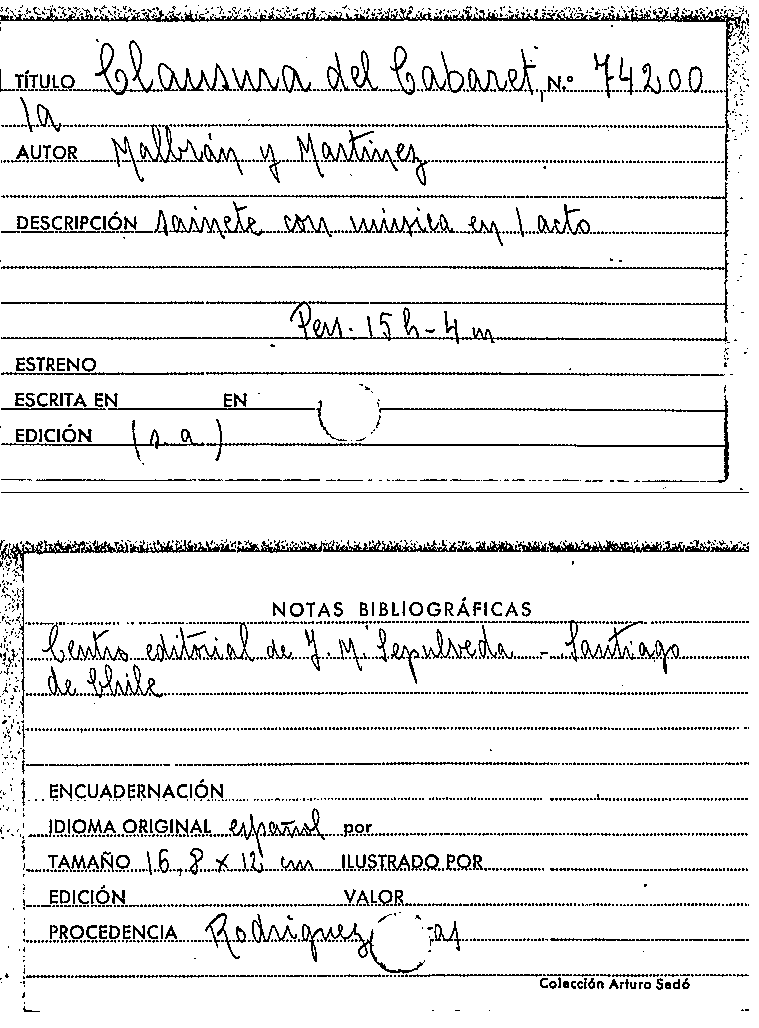 TÍTULO Clausura del Cabaret, N.º 74200
la
AUTOR Malbrán y Martínez
DESCRIPCIÓN sainete con música en 1 acto
Pers. 15 h - 4 m
ESTRENO
ESCRITA EN EN
EDICIÓN (s. a.)
NOTAS BIBLIOGRÁFICAS
Centro editorial de J. Mª Sepulveda - Santiago
de Chile
ENCUADERNACIÓN
IDIOMA ORIGINAL español por
TAMAÑO 16,8 x 12 cm ILUSTRADO POR
EDICIÓN VALOR
PROCEDENCIA Rodriguez
Colección Arturo Sedó